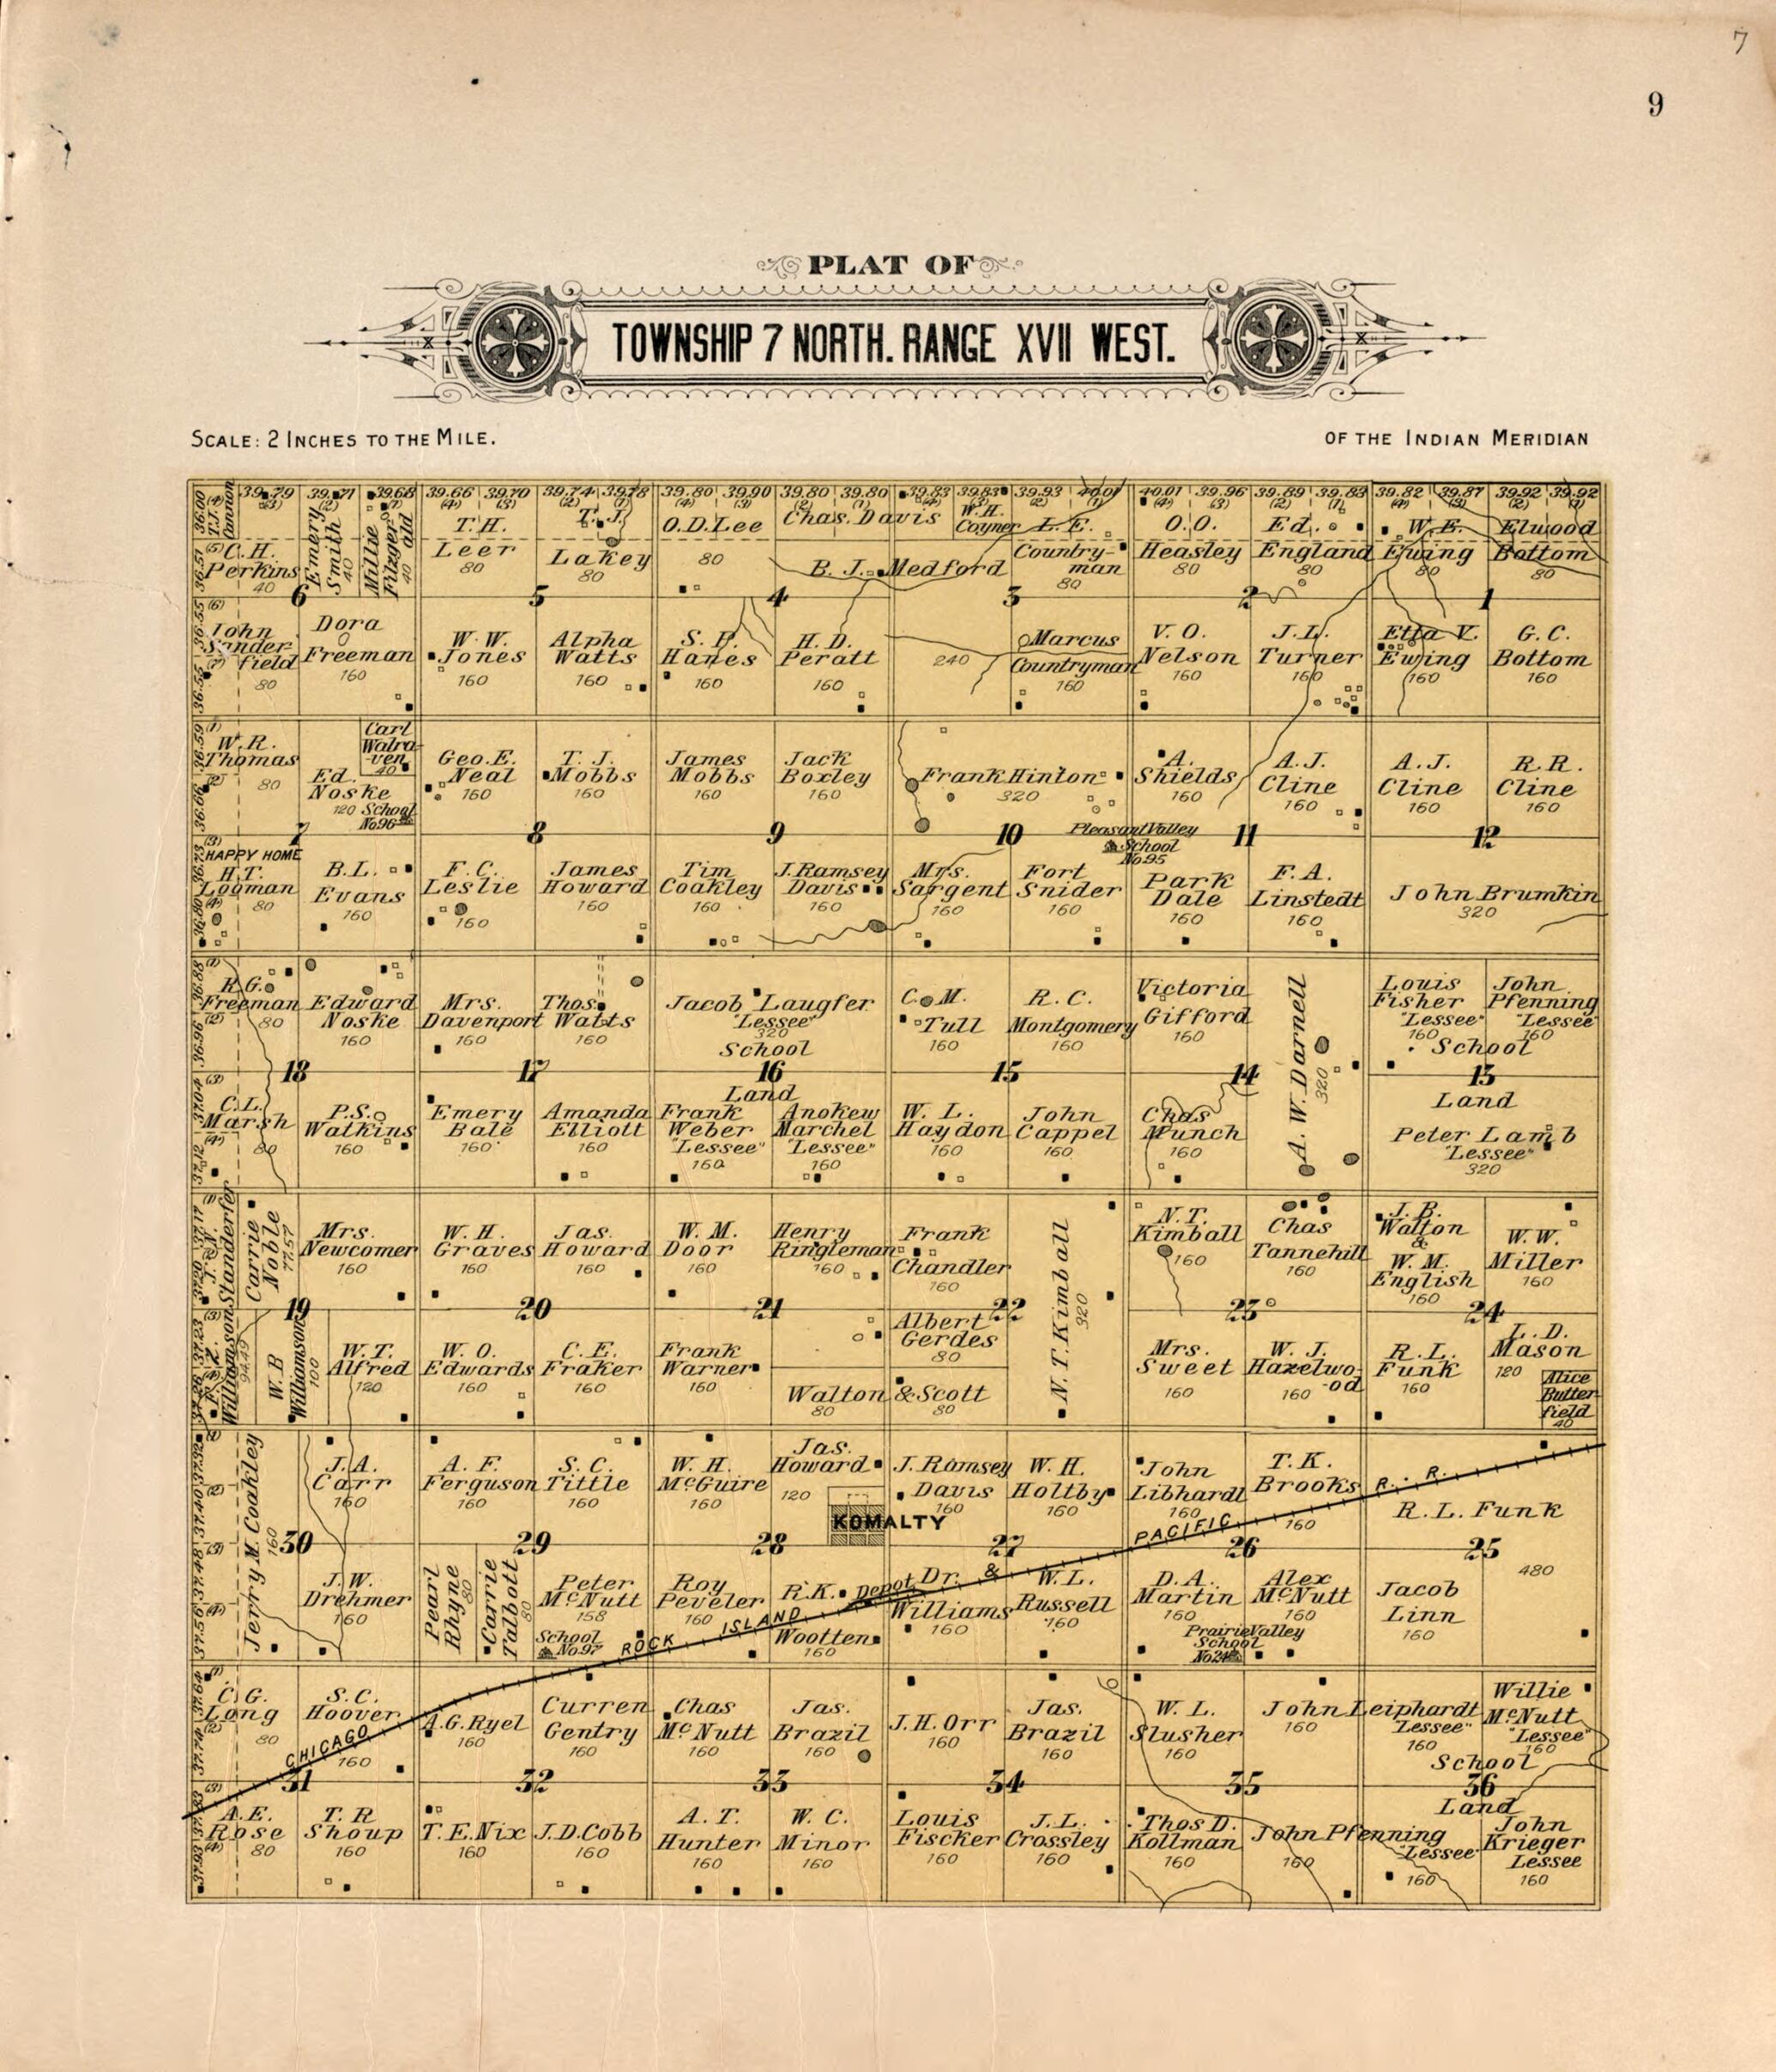 7
9
PLAT OF
TOWNSHIP 7 NORTH. RANGE XVII WEST.
SCALE: 2 INCHES TO THE MILE.
OF THE INDIAN MERIDIAN
39.79 39.71 39.68 39.66 39.70 39.74 39.78 39.80 39.90 39.80 39.80 39.83 39.83 39.93 40.01 40.01 39.96 39.89 39.83 39.82 39.87 39.92 39.92
T.J. Cannon
C. H. Perkins
40
Emery Smith
40
Millie Fitzgerald
40
6
T. H. Leer
80
T. J. Lakey
80
5
O.D. Lee
80
Chas. Davis
4
B. J. Medford
W. H. Coyner
3
L. E. Countryman
80
O. O. Heasley
80
Ed. England
80
2
W. E. Ewing
80
Elwood Bottom
80
1
John Sanderfield
80
Dora Freeman
160
W. W. Jones
160
Alpha Watts
160
S. B. Hanes
160
H. D. Peratt
160
240
Marcus Countryman
160
V. O. Nelson
160
J. L. Turner
160
Etta V. Ewing
160
G. C. Bottom
160
W. R. Thomas
80
Carl Walraven
40
Ed. Noske
120
School No 96
7
Geo. E. Neal
160
T. J. Mobbs
160
8
James Mobbs
160
Jack Boxley
160
9
Frank Hinton
320
10
A. Shields
160
A. J. Cline
160
Pleasant Valley School No 95
11
A. J. Cline
160
R. R. Cline
160
12
HAPPY HOME
H. T. Logman
80
B. L. Evans
160
F. C. Leslie
160
James Howard
160
Tim Coakley
160
J. Ramsey Davis
160
Mrs. Sargent
160
Fort Snider
160
Park Dale
160
F. A. Linstedt
160
John Brumkin
320
R. G. Freeman
80
Edward Noske
160
18
Mrs. Davenport
160
Thos. Watts
160
17
Jacob Laugfer
"Lessee"
320
School
16
Land
C. M. Tull
160
R. C. Montgomery
160
15
Victoria Gifford
160
14
A. W. Darnell
320
Louis Fisher
"Lessee"
160
John Pfenning
"Lessee"
160
School
13
Land
C. L. Marsh
80
P. S. Watkins
160
Emery Bale
160
Amanda Elliott
160
Frank Weber
"Lessee"
160
Anokew Marchel
"Lessee"
160
W. L. Haydon
160
John Cappel
160
Chas Munch
160
Peter Lamb
"Lessee"
320
J. N. Standerfer
Carrie Noble
77.57
Mrs. Newcomer
160
19
W. H. Graves
160
Jas. Howard
160
20
W. M. Door
160
Henry Ringleman
160
21
Frank Chandler
160
22
N. T. Kimball
320
N. T. Kimball
160
Chas Tannehill
160
23
J. B. Walton & W. M. English
160
W. W. Miller
160
24
Williamson
94.49
W. B Williamson
100
W. T. Alfred
120
W. O. Edwards
160
C. E. Fraker
160
Frank Warner
160
Albert Gerdes
80
Walton & Scott
80
80
Mrs. Sweet
160
W. J. Hazelwo-od
160
R. L. Funk
160
L. D. Mason
120
Alice Butterfield
40
Jerry M. Coakley
160
J. A. Carr
160
30
A. F. Ferguson
160
S. C. Tittle
160
29
W. H. McGuire
160
Jas. Howard
120
KOMALTY
28
J. Ramsey Davis
160
W. H. Holtby
160
27
John Libhardt
160
T. K. Brooks
160
26
R. L. Funk
480
25
J. W. Drehmer
160
Pearl Rhyne
80
Carrie Talbott
80
Peter McNutt
158
School No 97
Roy Peveler
160
R. K. Wootten
160
Depot
Dr. & Williams
160
W. L. Russell
160
D. A. Martin
160
Alex McNutt
160
Prairie Valley School No 24
Jacob Linn
160
CHICAGO ROCK ISLAND & PACIFIC R. R.
C. G. Lang
80
S. C. Hoover
160
31
A. G. Ryel
160
Curren Gentry
160
32
Chas McNutt
160
Jas. Brazil
160
33
J. H. Orr
160
Jas. Brazil
160
34
W. L. Slusher
160
35
John Leiphardt
160
"Lessee"
160
Willie McNutt
"Lessee"
160
School
36
Land
A. E. Rose
80
T. R Shoup
160
T. E. Nix
160
J. D. Cobb
160
A. T. Hunter
160
W. C. Minor
160
Louis Fischer
160
J. L. Crossley
160
Thos D. Kollman
160
John Pfenning
160
"Lessee"
160
John Krieger
Lessee
160